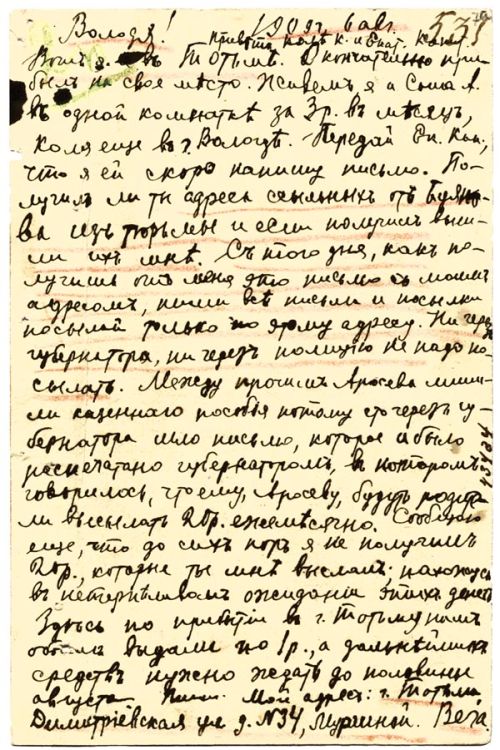 Володя! 1909 г. 6 авг. 531
Привѣтъ Павл. К. и Екат. Конст.
Вотъ я въ Тотьмѣ. Окончательно при-
былъ на свое мѣсто. Живемъ я и Саша А.
въ одной комнаткѣ за 3р. въ мѣсяцъ,
Коля еще въ г. Вологдѣ. Передай Ек. Кон.,
что я ей скоро напишу письмо. По-
лучилъ ли ты адреса ссыльныхъ отъ
ва изъ тюрьмы и если получилъ выш-
ли ихъ мнѣ. Съ того дня, какъ по-
лучишь отъ меня это письмо съ моимъ
адресомъ, пиши всѣ письма и посылки
посылай только по этому адресу. Ни черезъ
губернатора, ни черезъ полицію не надо по-
сылать. Между прочимъ Аросева лиши-
ли казеннаго пособія потому что черезъ гу-
бернатора шло письмо, которое и было
распечатано губернаторомъ, въ которомъ
говорилось, что ему, Аросеву, будутъ родите-
ли высылать 20р. ежемѣсячно. Сообщаю
еще, что до сихъ поръ я не получилъ
20р., которые ты мнѣ выслалъ; нахожусь
въ нетерпѣливомъ ожиданіи этихъ денегъ
Здѣсь по прибытіи въ г. Тотьму намъ
обоимъ выдали по 1р., а дальнѣйшихъ
средствъ нужно ждать до половины
августа. Мой адресъ: г. Тотьма
Димитріевская ул д. №34, Мургиной. Вяча